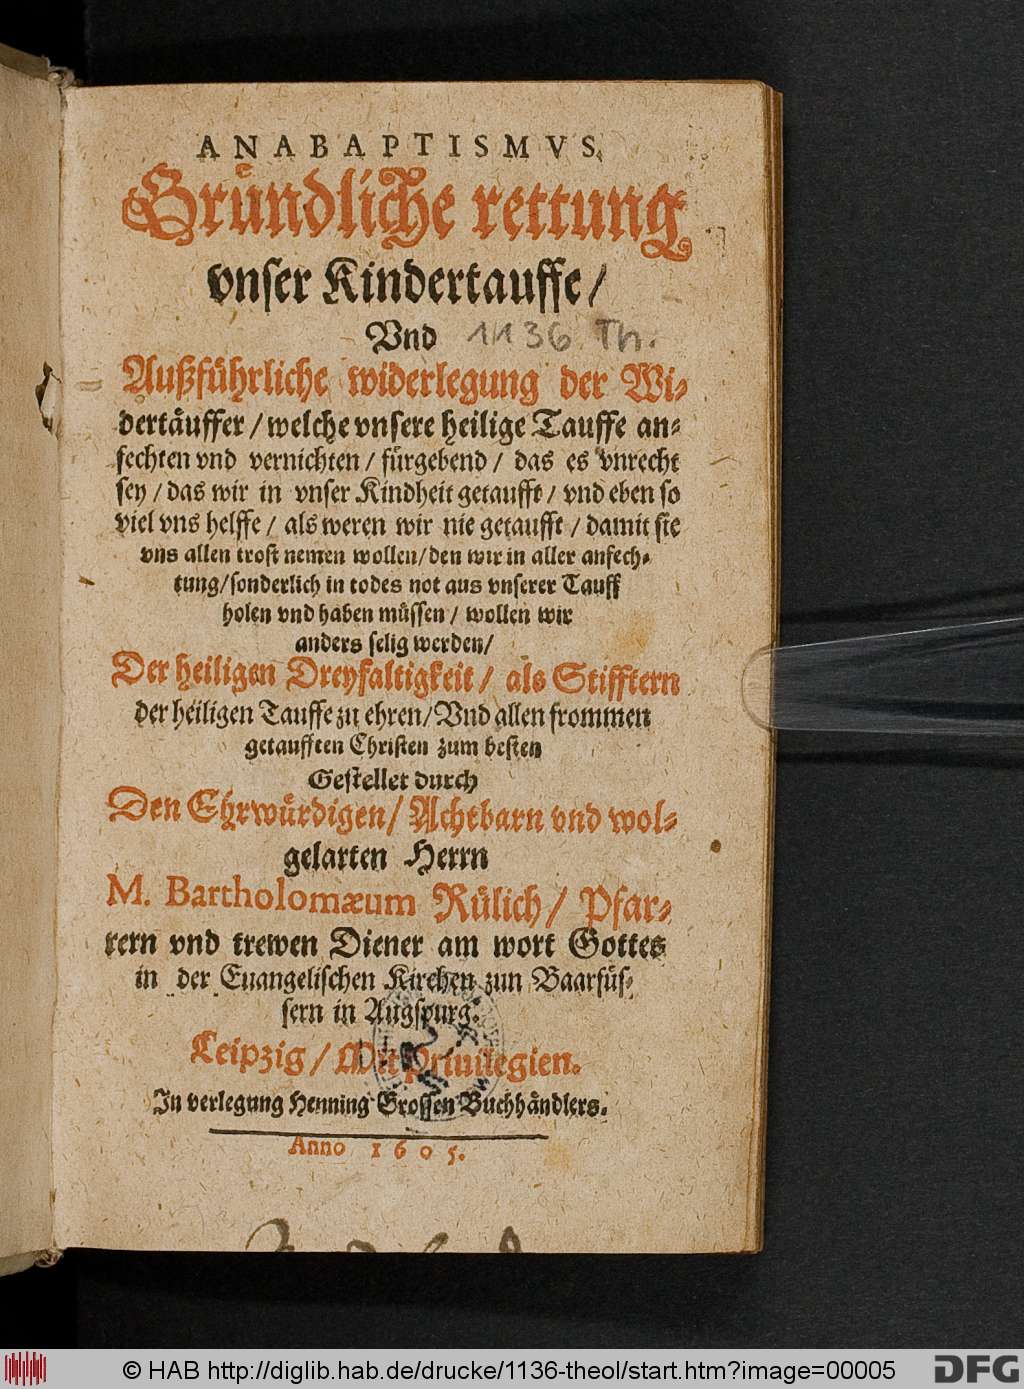 ANABAPTISMVS,
Gründliche rettung
vnser Kindertauffe/
Vnd 1136 Th.
Außführliche widerlegung der Wi-
dertäuffer/welche vnsere heilige Tauffe an-
fechten vnd vernichten/ fürgebend/ das es vnrecht
sey/das wir in vnser Kindheit getaufft/ vnd eben so
viel vns helffe/ als weren wir nie getaufft/ damit sie
vns allen trost nemen wollen/den wir in aller anfech-
tung/sonderlich in todes not aus vnserer Tauff
holen vnd haben müssen/ wollen wir
anders selig werden/
Der heiligen Dreyfaltigkeit/ als Stifftern
der heiligen Tauffe zu ehren/Vnd allen frommen
getaufften Christen zum besten
Gestellet durch
Den Ehrwürdigen/ Achtbarn vnd wol-
gelarten Herrn
M. Bartholomæum Rülich/ Pfar-
rern vnd trewen Diener am wort Gottes
in der Euangelischen Kirchen zun Baarfüs-
sern in Augspurg.
Leipzig/ Mit Priuilegien.
In verlegung Henning Grossen Buchhändlers.
Anno 1605.
© HAB http://diglib.hab.de/drucke/1136-theol/start.htm?image=00005
DFG